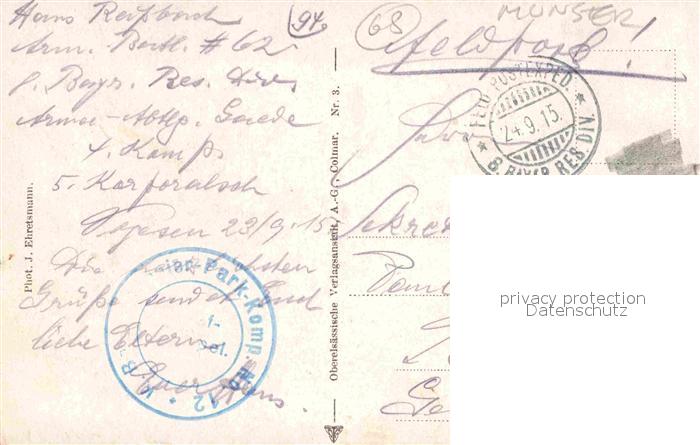 Hans Reißbach
Arm. Batl. # 62
8. Bayr. Res. Div.
Armee-Abtlg. Gaede
4. Komp.
5. Korporalsch
Vogesen 23/9.15
Die
Grüße sendet Euch
liebe Eltern
Euer Hans.
94
68
MÜNSTER
Feldpost!
FELD-POSTEXPED.
24.9.15.
8. BAYER. RES. DIV.
Sekret
Ge
Park-Komp. No 12 * K.B.
Phot. J. Ehretsmann.
Oberelsässische Verlagsanstalt, A.-G., Colmar. Nr. 3.
privacy protection
Datenschutz